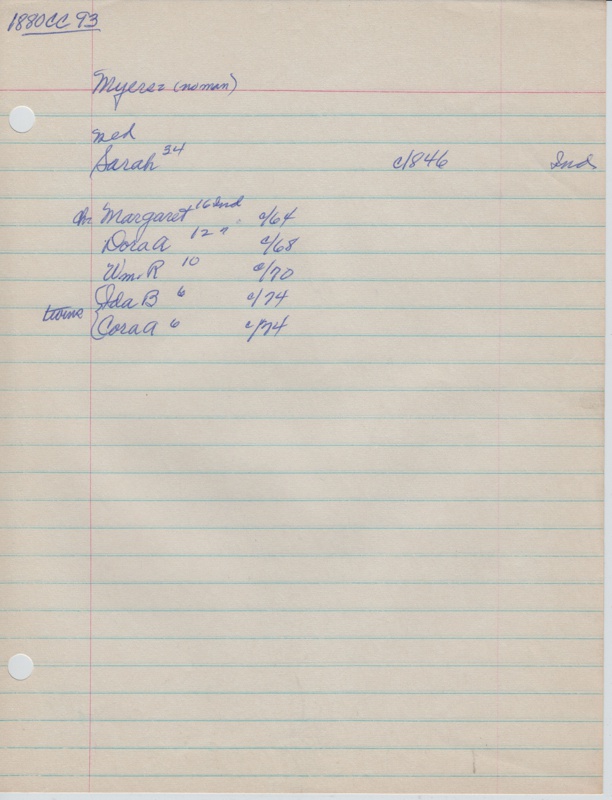 1880CC 93
Myers (no man)
Wed
Sarah 34 c/846 Ind
Ch. Margaret 16 Ind c/64
Dora A 12 " c/68
Wm. R 10 c/70
Ida B 6 c/74
twins
Cora A 6 c/74